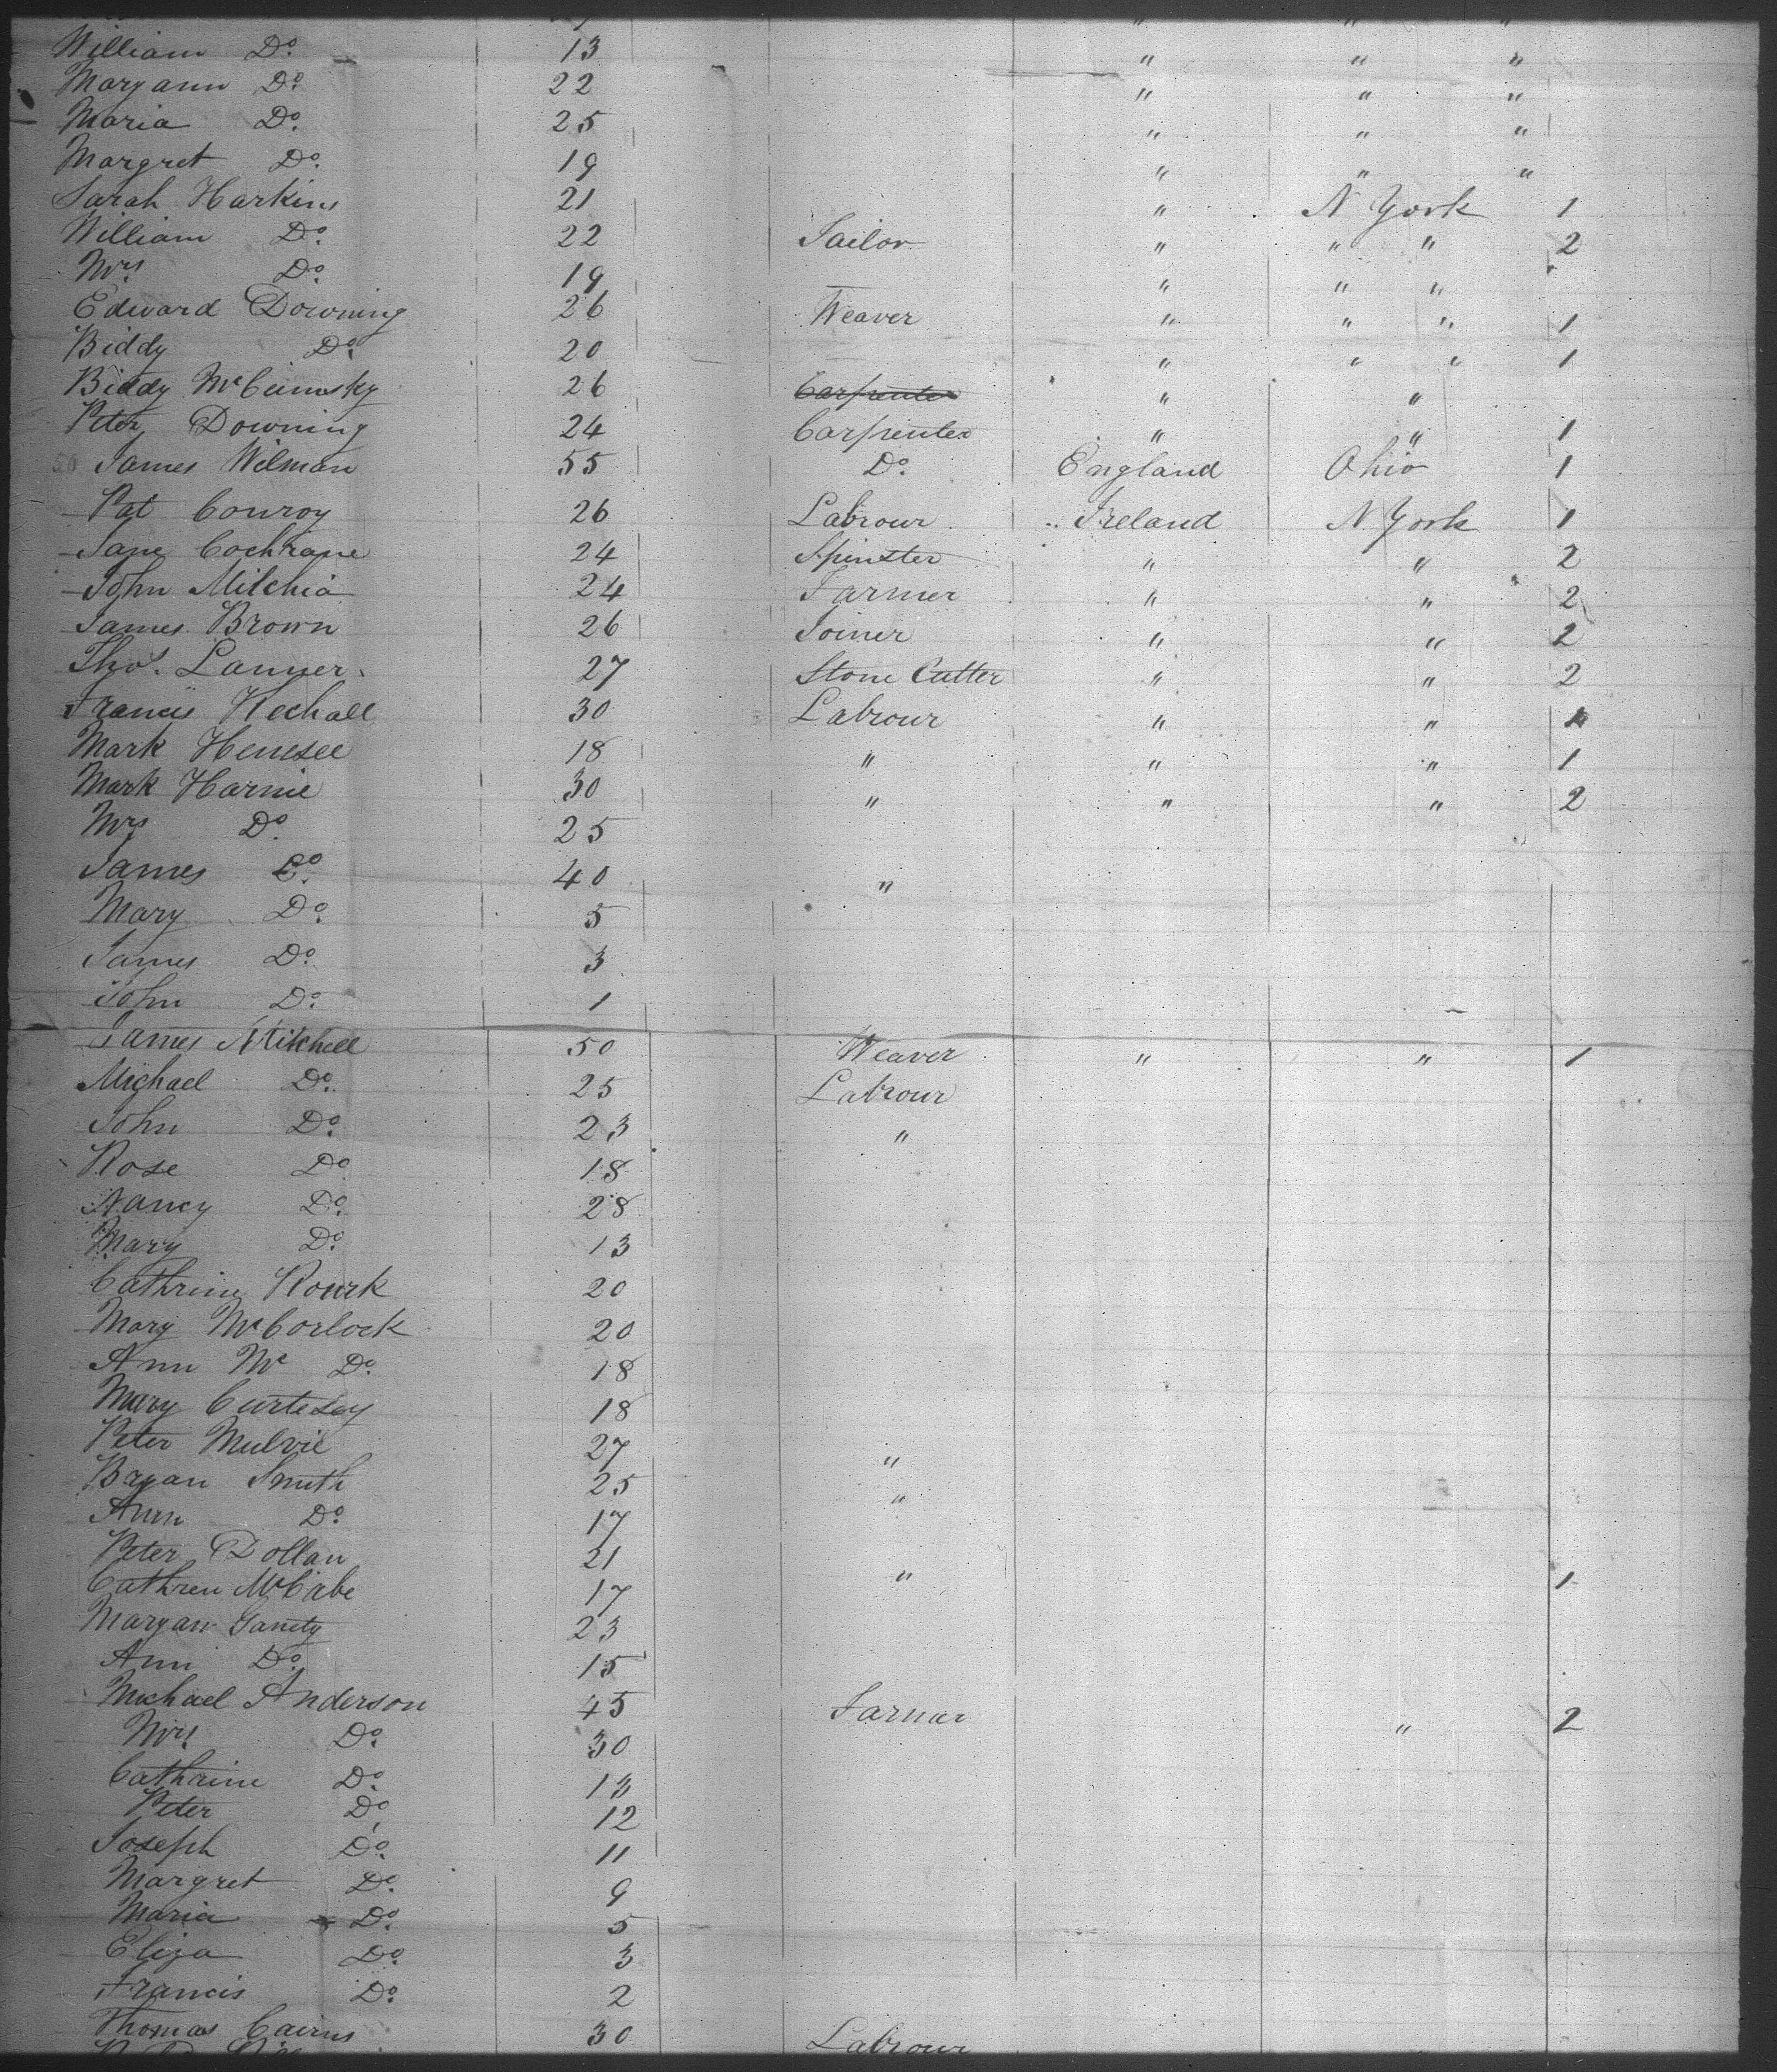 William Do. 13 " " "
Maryann Do. 22 " " "
Maria Do. 25 " " "
Margret Do. 19 " " "
Sarah Harkins 21 " N York 1
William Do. 22 Tailor " " " 2
Mrs Do. 19 " " "
Edward Downing 26 Weaver " " " 1
Biddy Do. 20 " " " 1
Biddy 26 Carpenter " "
Peter Downing 24 Carpenter " " 1
James Wilman 55 Do. England Ohio 1
Pat Conroy 26 Labrour Ireland N York 1
Jane Cochrane 24 Spinster " " 2
John Milchia 24 Farmer " " 2
James Brown 26 Joiner " " 2
Thos. Lanner 27 Stone Cutter " " 2
Francis Kechall 30 Labrour " "
Mark Henesee 18 " " " 1
Mark Harnie 30 " " " 2
Mrs Do. 25
James Do. 40 "
Mary Do. 5
James Do. 3
John Do. 1
James Mitchell 50 Weaver " " 1
Michael Do. 25 Labrour
John Do. 23 "
Rose Do. 18
Nancy Do. 28
Mary Do. 13
Cathrine Rourk 20
Mary McCorlock 20
Ann Mc Do. 18
Mary Curtesey 18
Peter Mulvie 27 "
Bryan Smith 25 "
Ann Do. 17
Peter Dollan 21 "
Cathren McCabe 17 1
Maryan Ganety 23
Ann Do. 15
Michael Anderson 45 Farmar " 2
Mrs Do. 30
Cathrine Do. 13
Peter Do. 12
Joseph Do. 11
Margret Do. 9
Maria Do. 5
Eliza Do. 3
Francis Do. 2
Thomas Cairns 30 Labrour